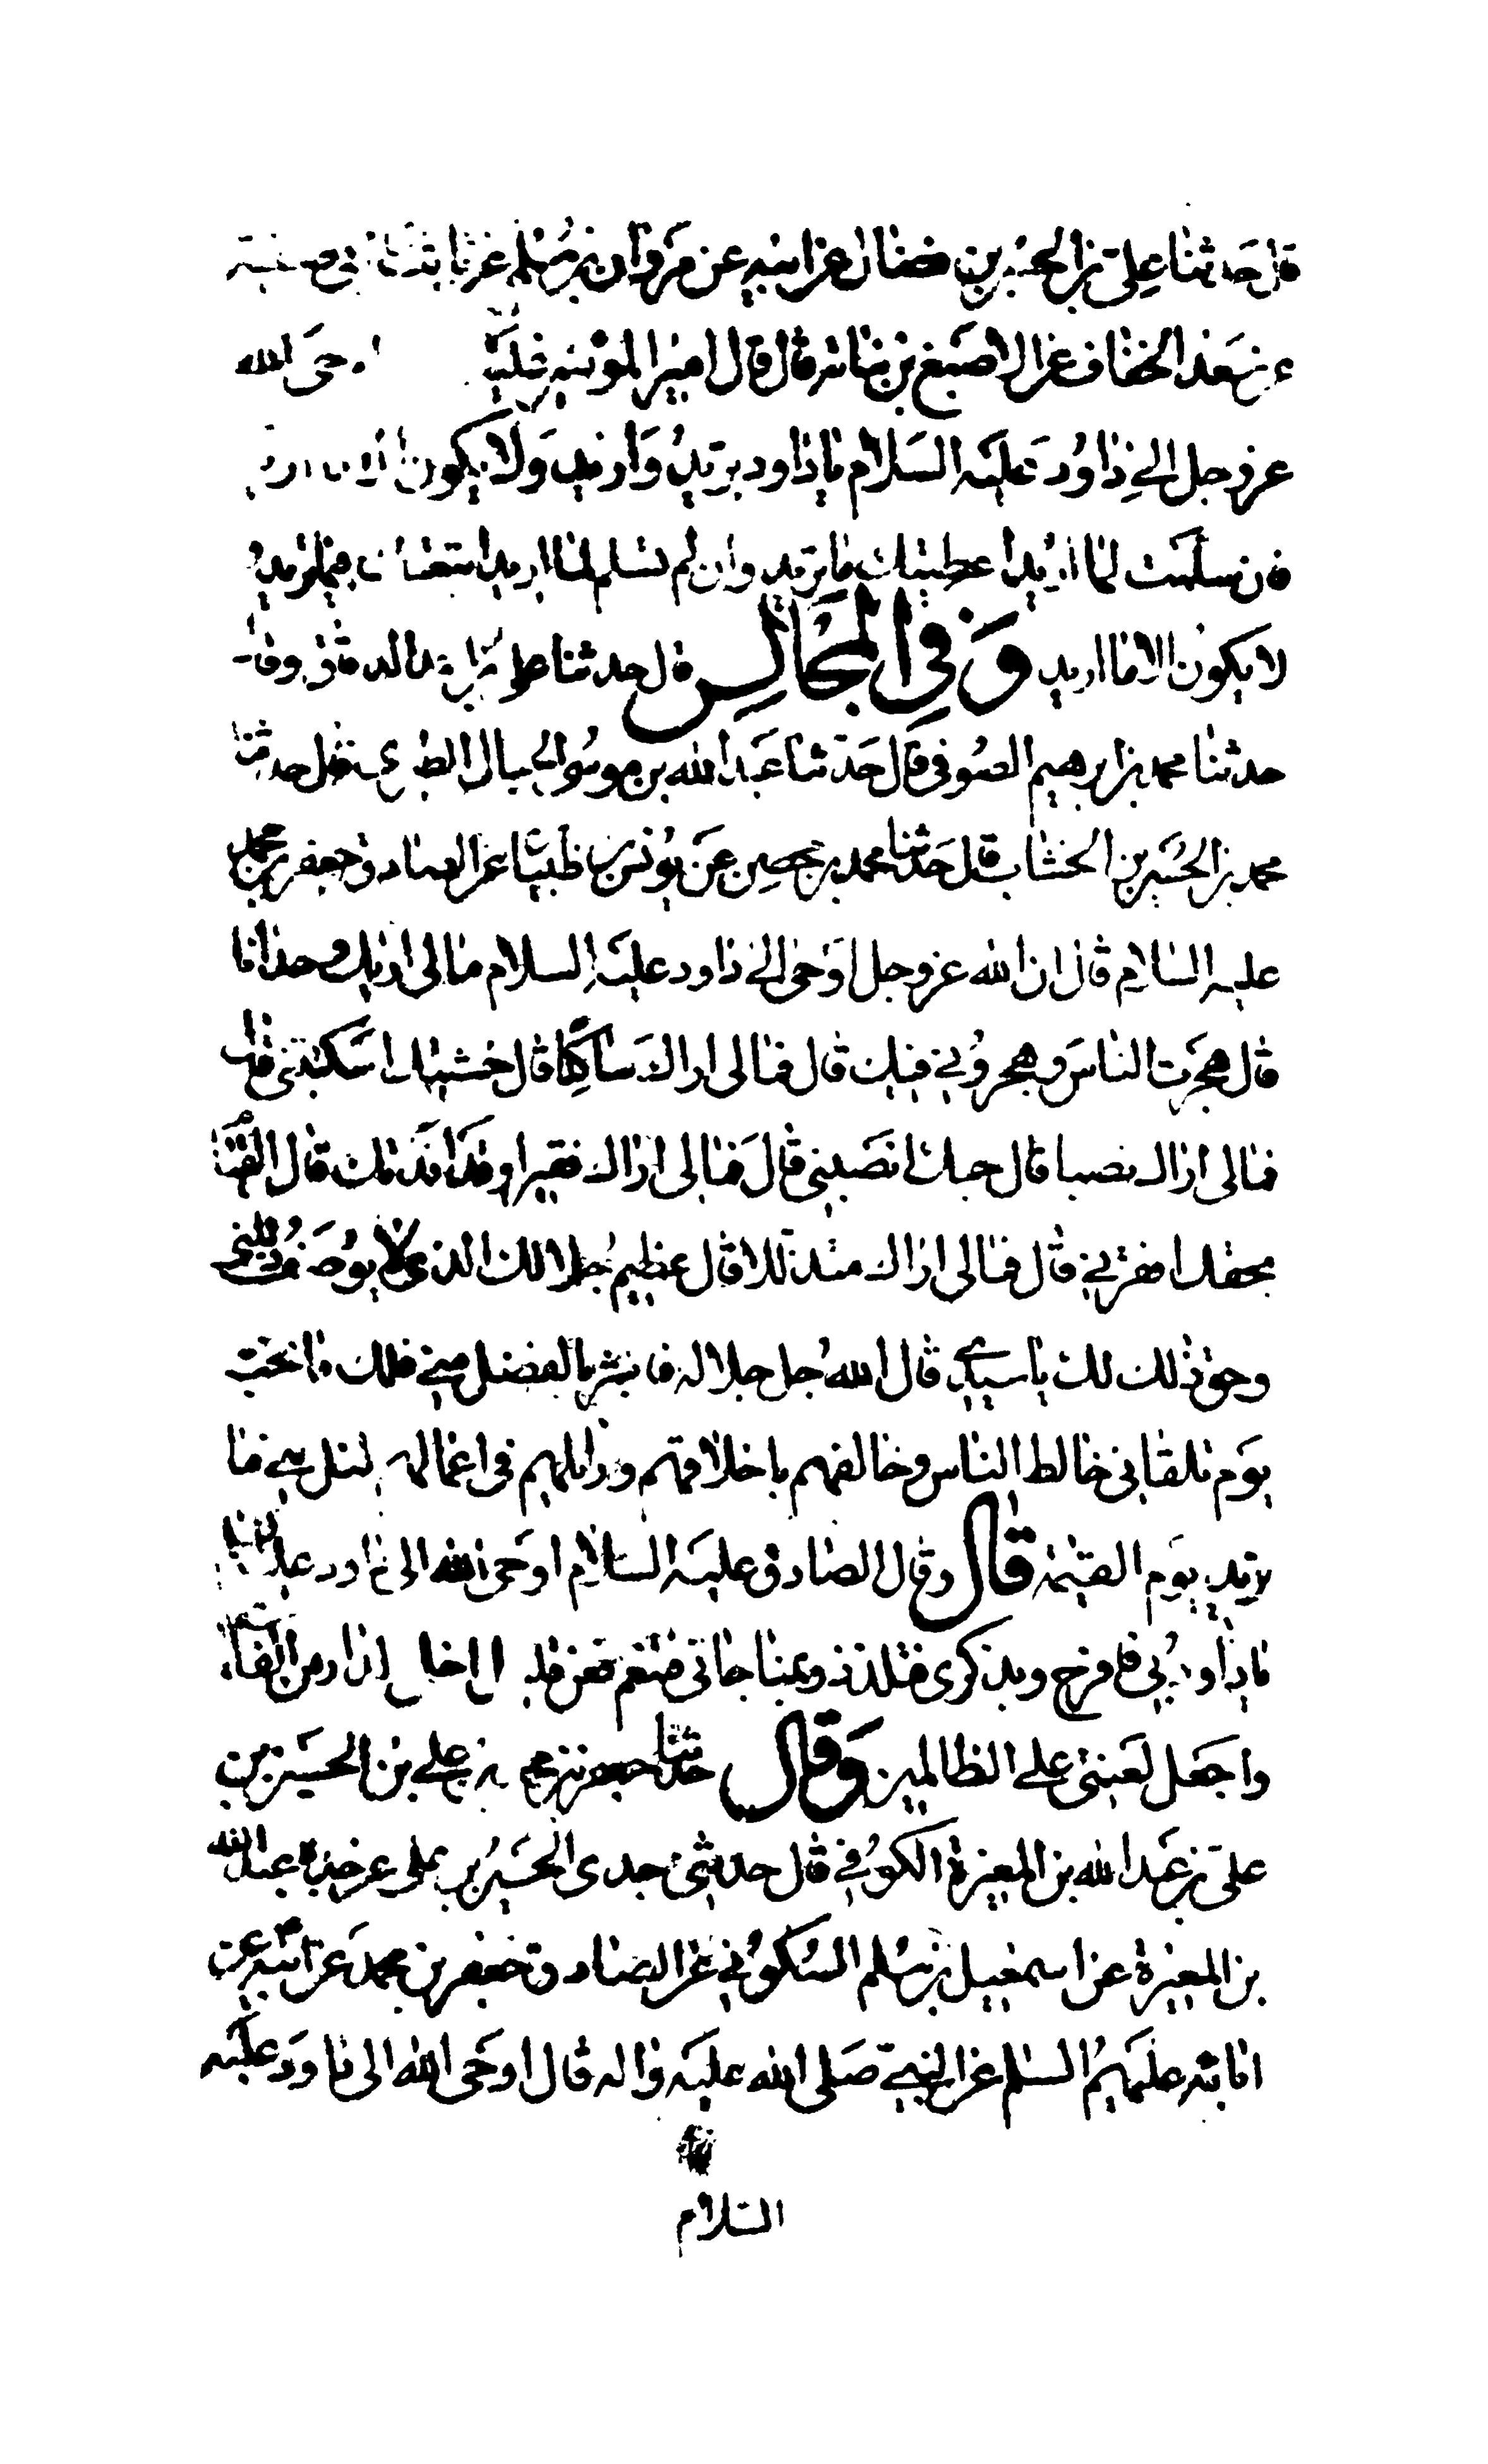 قال حدثنا علي بن الحسين بن فضال عن ابيه عن مروان بن مسلم عن ثابت بن ابي صفية
عن سعد الخفاف عن الاصبغ بن نباته قال قال امير المؤمنين عليه اوحى الله
عز وجل الى داود عليه السلام يا داود تريد واريد ولا يكون الا ما اريد
فان سلمت لما اريد اعطيتك ما تريد وان لم تسلم لما اريد اتعبتك فيما تريد
لا يكون الا ما اريد وفي المجالس قال حدثنا
حدثنا محمد بن ابرهيم الصوفي قال حدثنا عبد الله بن موسى الحبال الطبري قال حدثنا
محمد بن الحسين الخشاب قال حدثنا محمد بن محصن عن يونس بن ظبيان عن الصادق جعفر بن محمد
عليه السلام قال ان الله عز وجل اوحى الى داود عليه السلام مالي اريك وحدانا
قال هجرت الناس وهجروني فيك قال فمالي اراك ساكتا قال خشيتك اسكتتني قال
فمالي اراك نصبا قال حبك انصبني قال فمالي اراك فقيرا وقد افدتك قال القيام
بحقك افقرني قال فمالي اراك متذللا قال عظيم جلالك الذي لا يوصف ذللني
وحق ذلك لك يا سيدي قال الله جل جلاله فابشر بالفضل مني فلك ما تحب
يوم تلقاني خالط الناس وخالقهم باخلاقهم وزايلهم في اعمالهم لتنل مني ما
تريد يوم القيمة قال وقال الصادق عليه السلام اوحى الله الى داود عليه السلام
يا داود بي فافرح وبذكري فتلذذ وبمناجاتي فتنعم فعن قليل اخلي الدار من الفاسقين
واجعل لعنتي على الظالمين وقال حدثنا جعفر بن علي بن الحسين بن
علي بن عبد الله بن المغيرة الكوفي قال حدثني جدي الحسين بن علي عن جده عبد الله
بن المغيرة عن اسمعيل بن مسلم السكوني عن الصادق جعفر بن محمد عن ابيه عن
ابائه عليهم السلم عن النبي صلى الله عليه واله قال اوحى الله الى داود عليه
السلام